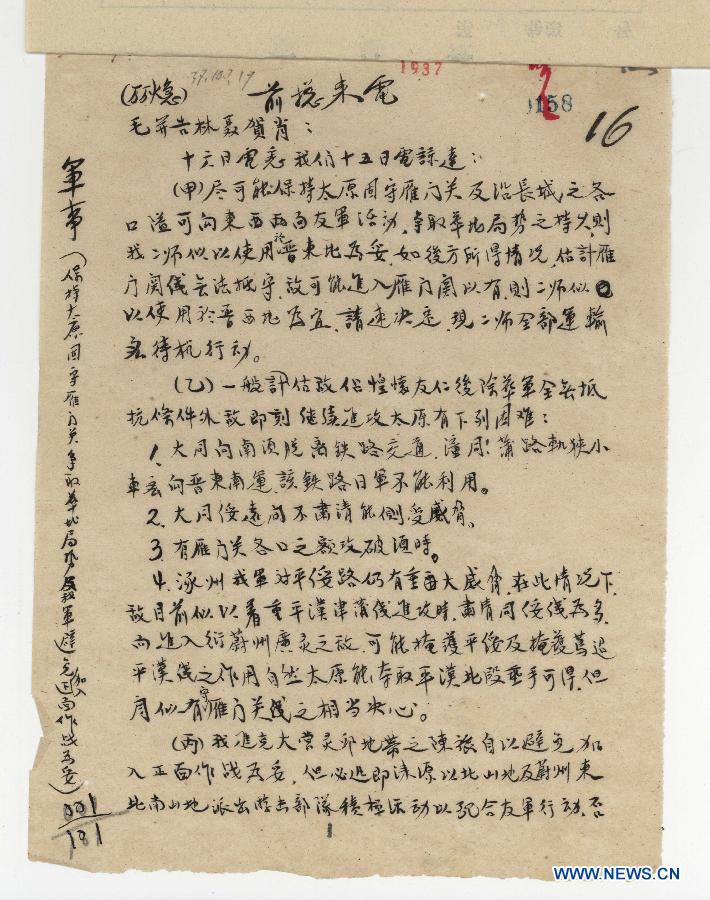 1937
37.10.?.19
0158
16
(万火急) 前总来电
毛并告林聂贺肖：
十六日电悉我们十五日电谅达：
(甲)尽可能保持太原固守雁门关及沿長城之各
口隘可向東西两面友軍活动，争取华北局势之持久，则
我二师似以使用於晋東北为妥，如後方所得情况，估計雁
门関线无法抵守，敌可能進入雁门関以南，则二师似
以使用於晋西北为宜，請速决定，現二师全部運輸
待机行动。
(乙)一般計估敌佔懷仁後除華軍全無抵
抗條件外敌即刻继续進攻太原有下列困难：
1. 大同向南须脱离铁路交通，潼同蒲路軌狭小
車向晋東南運，該铁路日軍不能利用。
2. 大同绥遠间不肃清能側受威脅、
3. 有雁门关各口之额攻破須時。
4. 涿州我軍对平绥路仍有重大威脅，在此情况下，
敌目前似以着重平漢津浦线進攻時，肃清同绥线为多，
而進入蔚州廣灵之敌，可能掩護平绥及掩護
平漢线之作用自然太原能夺取平漢北段垂手可得，但
同似有守雁门关线之相当决心。
(丙)我進克大营灵邱地帶之陳旅自以避免加
入正面作战为妥，但必迅即涞源以北山地及蔚州東
北南山地派出游击部隊積極活动以配合友軍行动，否
1
軍事(保持太原固守雁门关争取华北局势及我軍避免加入正面作战为妥)
001/181
WWW.NEWS.CN